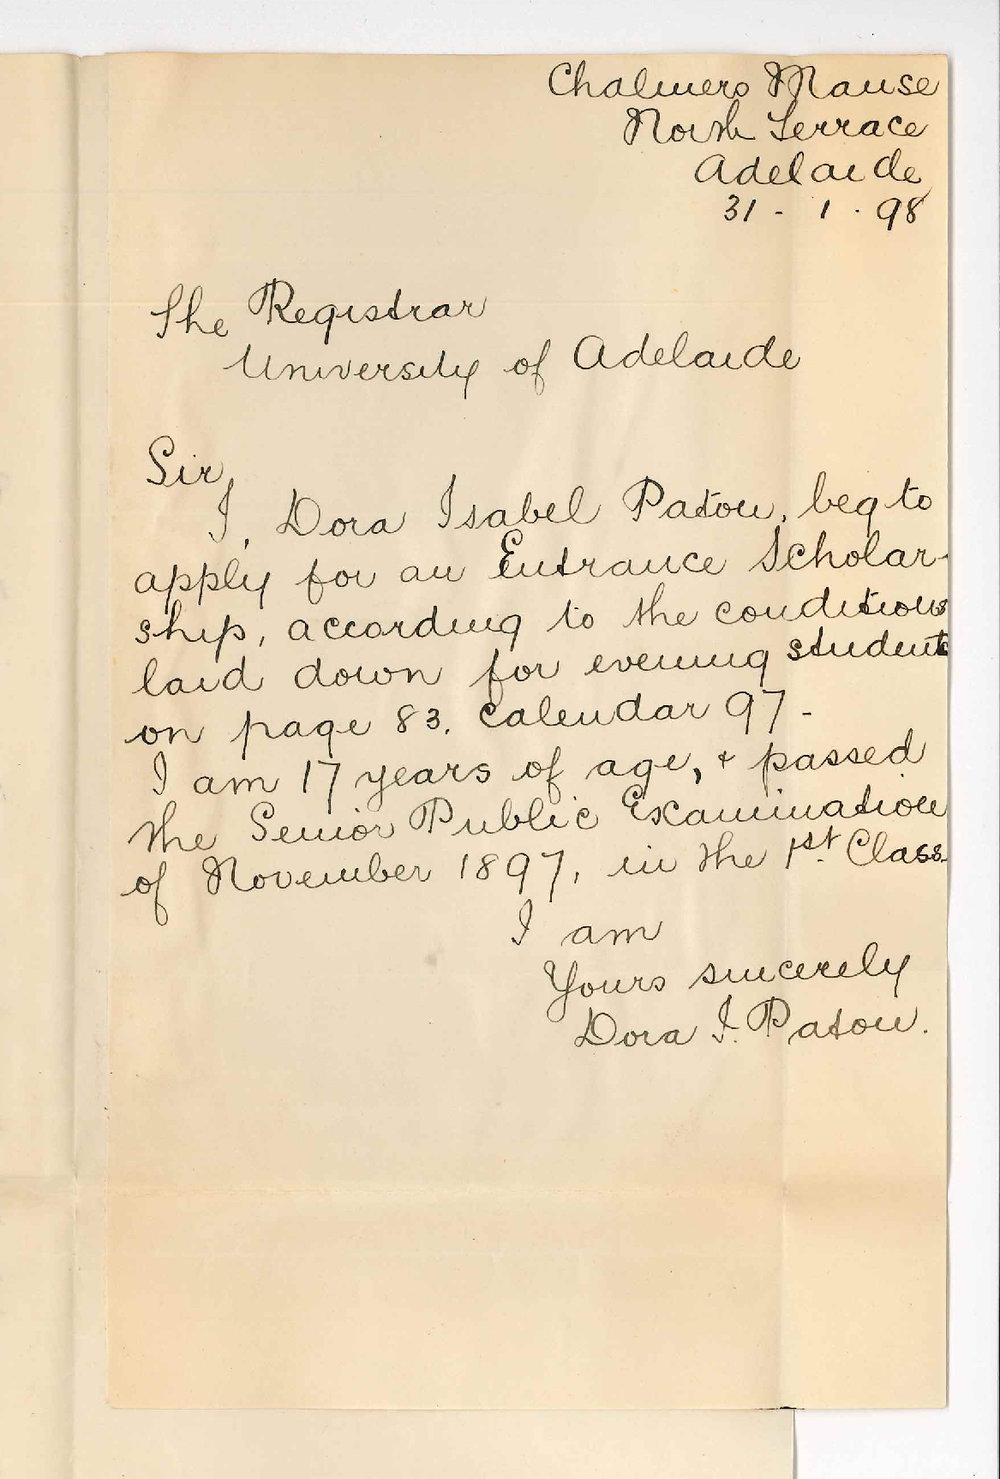 Chalmers Manse
North Terrace
Adelaide
31 - 1 . 98
The Registrar
University of Adelaide
Sir,
I, Dora Isabel Paton, beg to
apply for an Entrance Scholar-
ship, according to the conditions
laid down for evening students
on page 83. Calendar 97 -
I am 17 years of age, & passed
the Senior Public Examination
of November 1897, in the 1st. Class.
I am
Yours sincerely
Dora I. Paton.